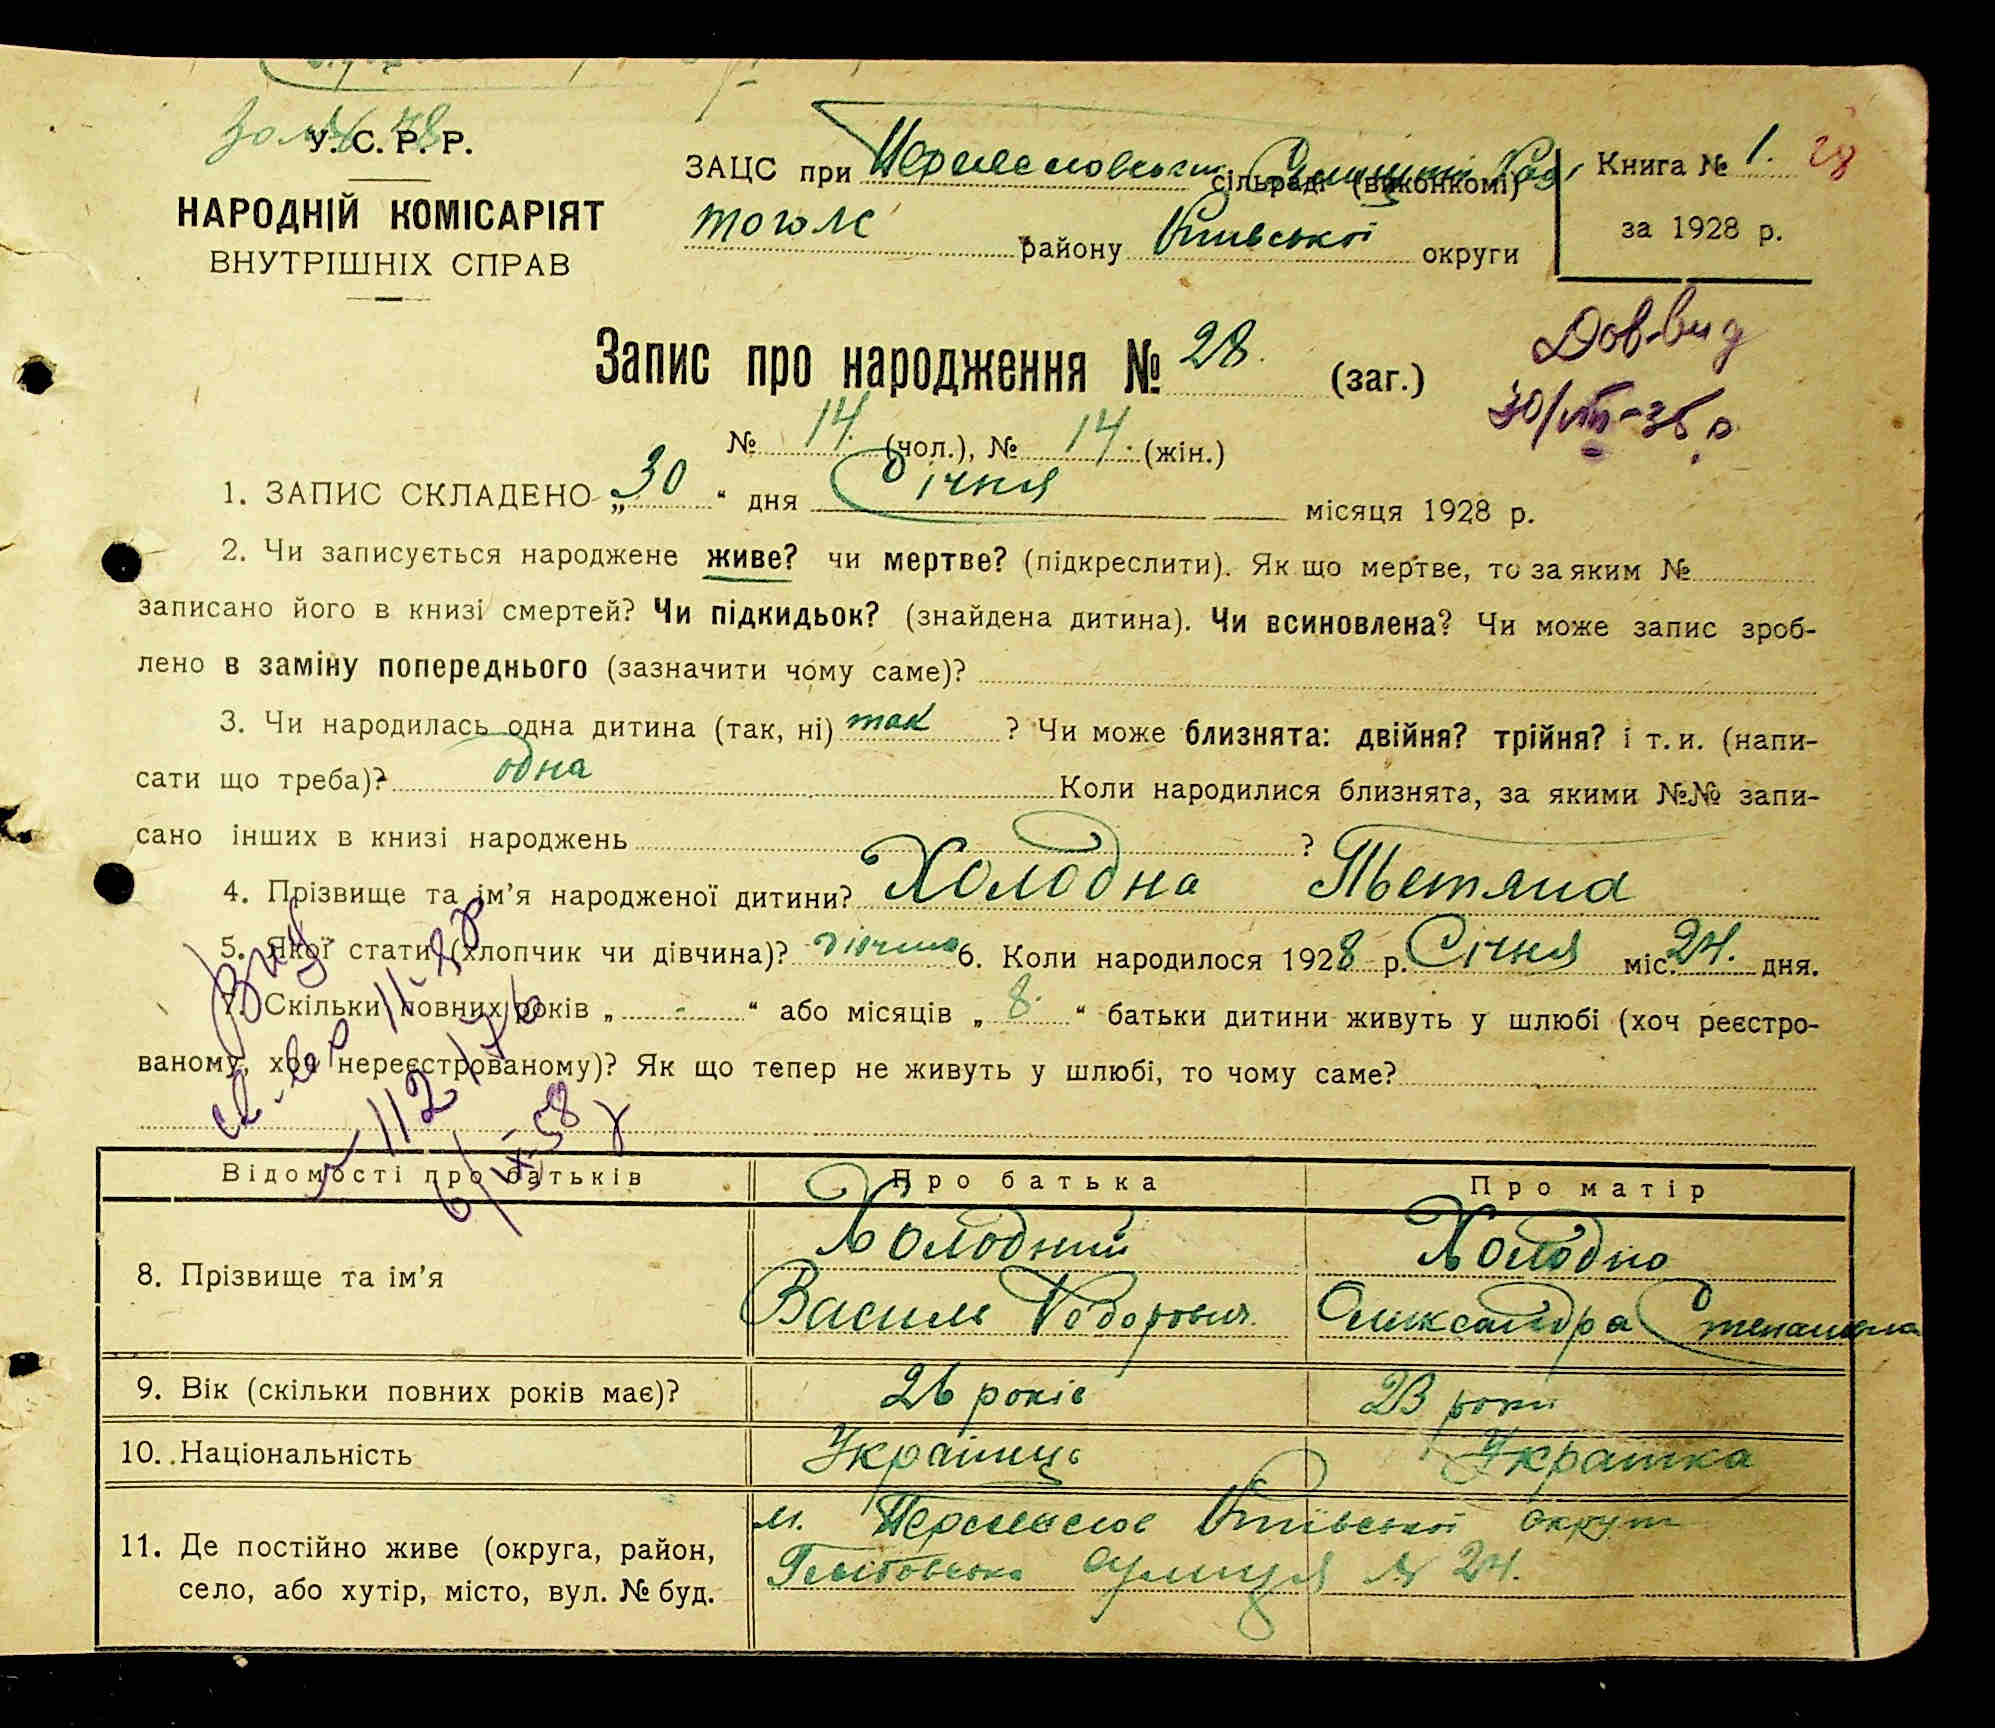 У. С. Р. Р.
НАРОДНІЙ КОМІСАРІЯТ
ВНУТРІШНІХ СПРАВ
ЗАЦС при Переяславськ сільраді (виконкомі)
того ж району Київської округи
Книга № 1. 28
за 1928 р.
Запис про народження № 28. (заг.)
Дов. вид
30/VIII-35 р.
№ 14. (чол.), № 14. (жін.)
1. ЗАПИС СКЛАДЕНО „30“ дня Січня місяця 1928 р.
2. Чи записується народжене живе? чи мертве? (підкреслити). Як що мертве, то за яким №
записано його в книзі смертей? Чи підкидьок? (знайдена дитина). Чи всиновлена? Чи може запис зроб-
лено в заміну попереднього (зазначити чому саме)?
3. Чи народилась одна дитина (так, ні) так ? Чи може близнята: двійня? трійня? і т. и. (напи-
сати що треба)? одна Коли народилися близнята, за якими №№ запи-
сано інших в книзі народжень ?
4. Прізвище та ім'я народженої дитини? Холодна Тетяна
5. Якої стати (хлопчик чи дівчина)? дівчина 6. Коли народилося 1928 р. Січня міс. 24. дня.
7. Скільки повних років „ - “ або місяців „ 8. “ батьки дитини живуть у шлюбі (хоч реєстро-
ваному, хоч нереєстрованому)? Як що тепер не живуть у шлюбі, то чому саме?
Відомості про батьків Про батька Про матір
8. Прізвище та ім'я Холодний Холодна
Василь Федорович Олександра Степановна
9. Вік (скільки повних років має)? 26 років 23 роки
10. Національність Українець Українка
11. Де постійно живе (округа, район, м. Переяслов Київської округи
село, або хутір, місто, вул. № буд. улиця № 24.